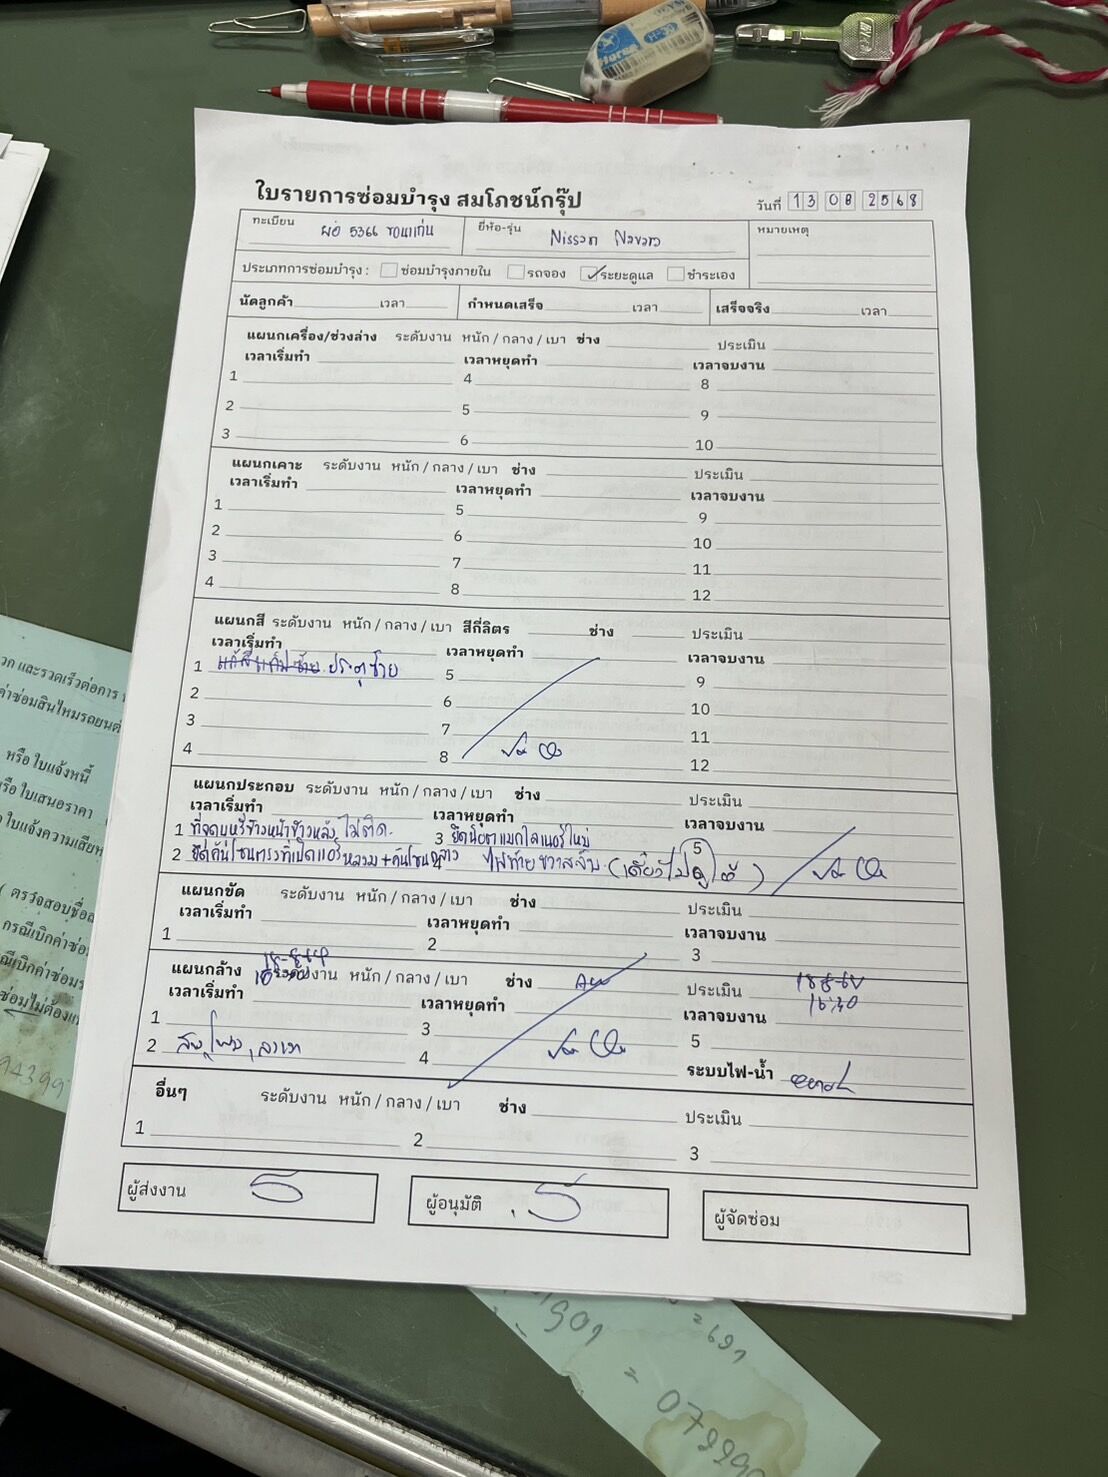 ใบรายการซ่อมบำรุง สมโภชน์กรุ๊ป
วันที่ 13 08 2568
ทะเบียน ผอ 5366 ขอนแก่น ยี่ห้อ-รุ่น Nissan Navara หมายเหตุ
ประเภทการซ่อมบำรุง : ซ่อมบำรุงภายใน รถจอง ระยะดูแล ชำระเอง
นัดลูกค้า เวลา กำหนดเสร็จ เวลา เสร็จจริง เวลา
แผนกเครื่อง/ช่วงล่าง ระดับงาน หนัก / กลาง / เบา ช่าง ประเมิน
เวลาเริ่มทำ เวลาหยุดทำ เวลาจบงาน
1 4 8
2 5 9
3 6 10
แผนกเคาะ ระดับงาน หนัก / กลาง / เบา ช่าง ประเมิน
เวลาเริ่มทำ เวลาหยุดทำ เวลาจบงาน
1 5 9
2 6 10
3 7 11
4 8 12
แผนกสี ระดับงาน หนัก / กลาง / เบา สีกี่ลิตร ช่าง ประเมิน
เวลาเริ่มทำ เวลาหยุดทำ เวลาจบงาน
1 ประตูซ้าย 5 9
2 6 10
3 7 11
4 8 12
แผนกประกอบ ระดับงาน หนัก / กลาง / เบา ช่าง ประเมิน
เวลาเริ่มทำ เวลาหยุดทำ เวลาจบงาน
1 ที่จุดบุหรี่ข้างหน้าข้างหลัง ไม่ติด. 3 ยึดน็อตแมกไลเนอร์ใหม่ 5
2 ไฟท้ายขวาสลับ (เดี๋ยวไปดูได้)
แผนกขัด ระดับงาน หนัก / กลาง / เบา ช่าง ประเมิน
เวลาเริ่มทำ เวลาหยุดทำ เวลาจบงาน
1 2 3
แผนกล้าง ระดับงาน หนัก / กลาง / เบา ช่าง ประเมิน 18-8-68
เวลาเริ่มทำ เวลาหยุดทำ เวลาจบงาน 16:30
1 3 5
2 4 ระบบไฟ-น้ำ
อื่นๆ ระดับงาน หนัก / กลาง / เบา ช่าง ประเมิน
1 2 3
ผู้ส่งงาน ผู้อนุมัติ ผู้จัดซ่อม
หรือ ใบแจ้งหนี้